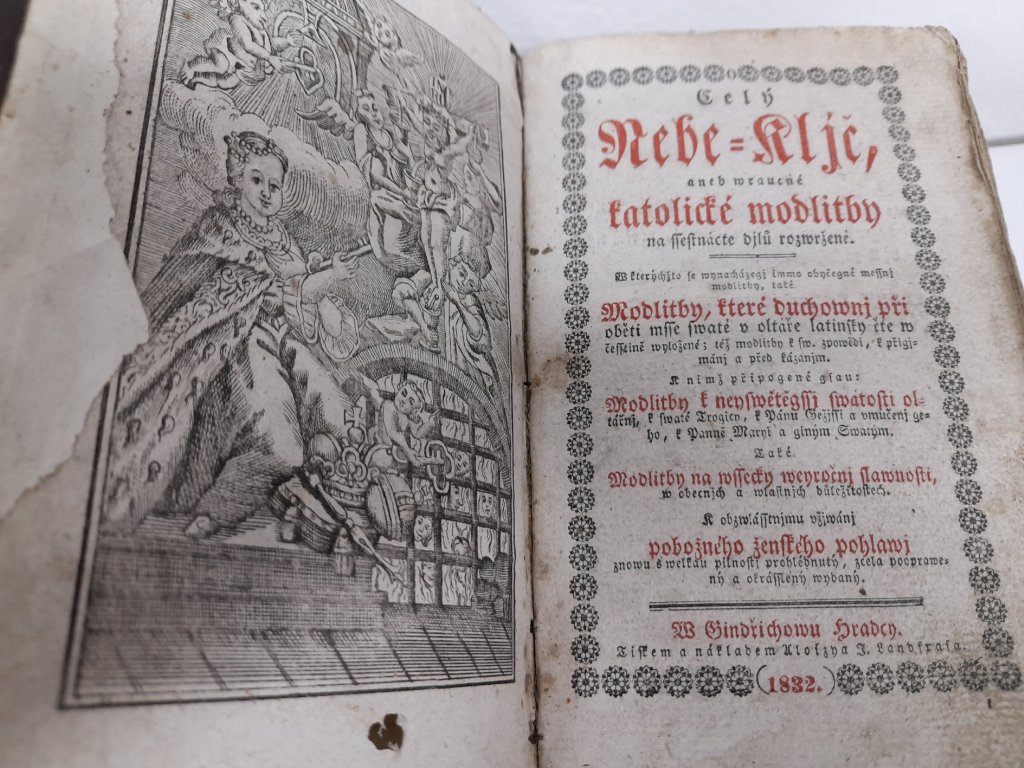 Celý
Nebe=Kljč,
aneb wraucné
katolické modlitby
na ssestnácte djlů rozwržené.
W kterýchžto se wynacházegj kromo obyčegné messnj
modlitby, také
Modlitby, které duchownj při
oběti msse swaté v oltáře latinsky čte w
česstině wyložené; též modlitby k sw. zpowědi, k přigj-
mánj a před kázanjm.
K nimž připogené gsau:
Modlitby k neyswětěgssj swátosti ol-
tářnj, k swaté Trogicy, k Pánu Gežjssi a vmučenj ge-
ho, k Panně Maryi a giným Swatým.
Také.
Modlitby na wssecky weyročnj slawnosti,
w obecných a wlastnjch důležitostech.
K obzwlásstnjmu vžjwánj
pobožného ženského pohlawj
znowu s welkau pilnostj prohlédnutý, zcela pooprawe-
ný a okrásslený wydaný.
W Gindřichowu Hradcy.
Tiskem a nákladem Aloizya J. Landfrasa.
(1832.)